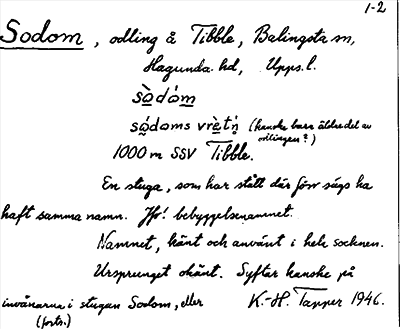 1-2
Sodom, odling å Tibble, Balingsta sn,
Hagunda hd, Upps. l.
sò̤dóm
só̤doms vrètn̥ (kanske bara äldre del av
odlingen?)
1000 m SSV Tibble.
En stuga, som har stått där förr sägs ha
haft samma namn. Jfr! bebyggelsenamnet.
Namnet, känt och använt i hela socknen.
Ursprunget okänt. Syftar kanske på
invånarna i stugan Sodom, eller K.-H. Tapper 1946.
(forts.)